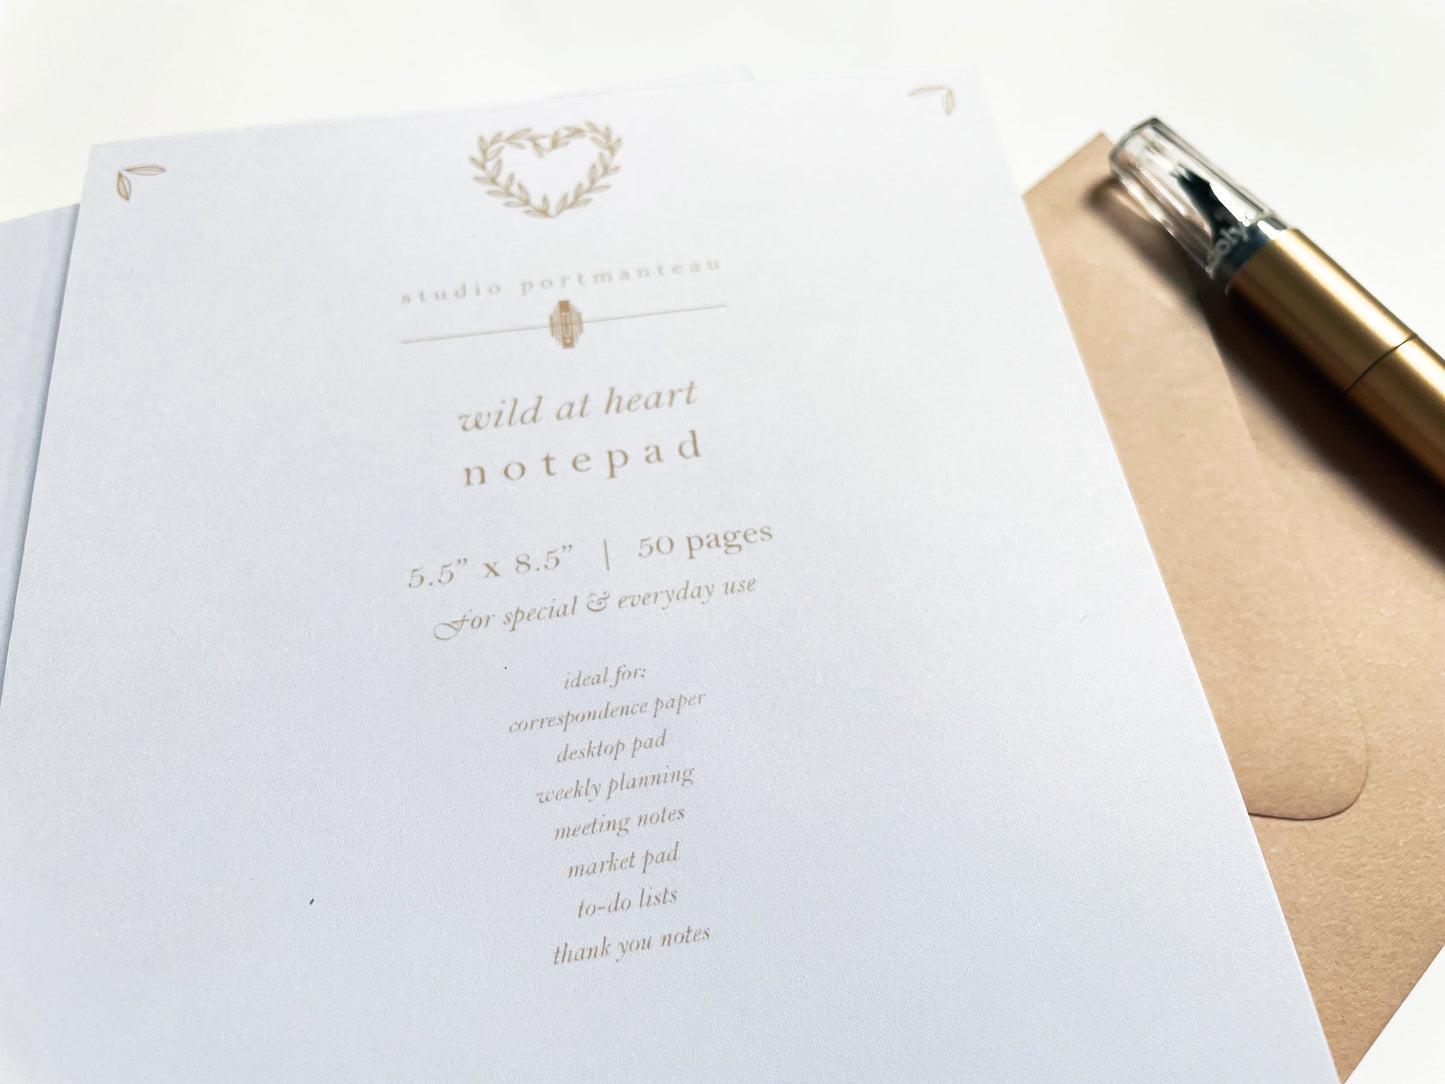 studio portmanteau
wild at heart
notepad
5.5” x 8.5” | 50 pages
For special & everyday use
ideal for:
correspondence paper
desktop pad
weekly planning
meeting notes
market pad
to-do lists
thank you notes